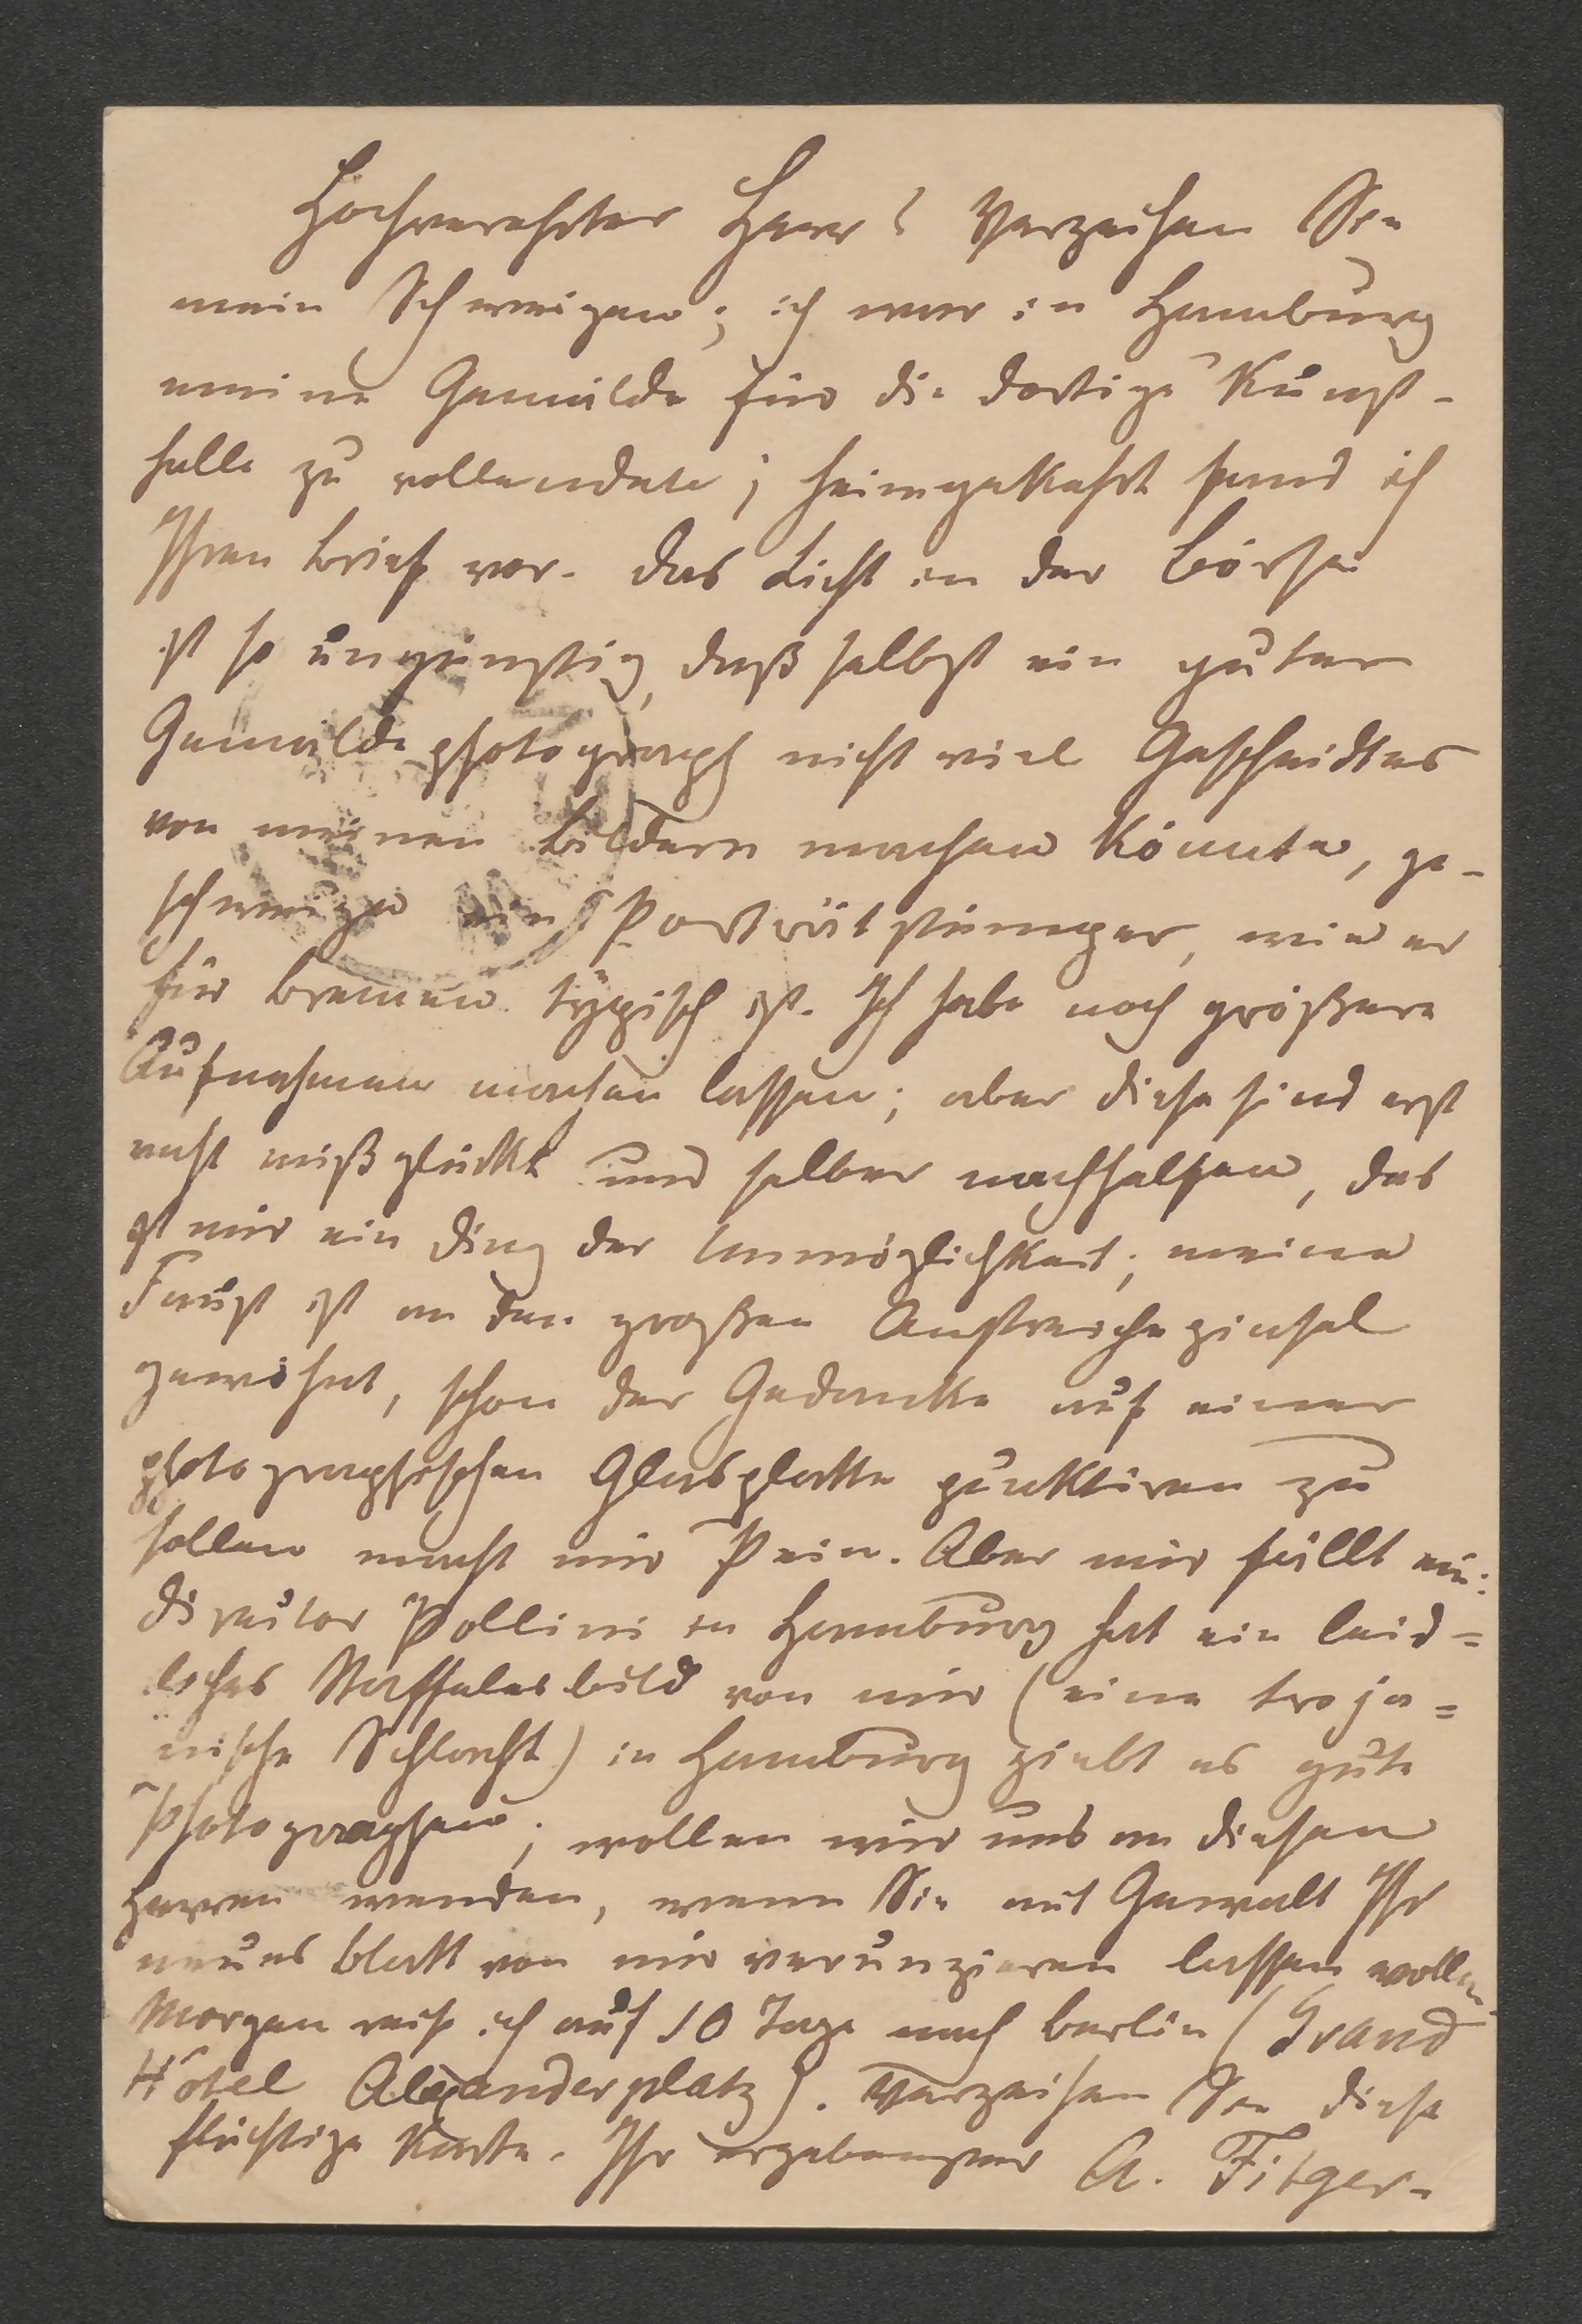 Hochverehrter Herr! Verzeihen Sie
mein Schweigen; ich war in Hamburg
meine Gemälde für die dortige Kunst-
halle zu vollenden; heimgekehrt fand ich
Ihren Brief vor. Das Licht in der Börse
ist so ungünstig, daß selbst ein guter
Gemäldephotograph nicht viel Gescheidtes
von meinen Bildern machen könnte, ge-
schweige ein Porträtstümper, wie er
für Bremen typisch ist. Ich habe noch größere
Aufnahmen machen lassen; aber diese sind erst
recht mißglückt und selber nachhelfen, das
ist mir ein Ding der Unmöglichkeit; meine
Faust ist an den großen Anstreichepinsel
gewöhnt, schon der Gedanke auf einer
photographischen Glasplatte punktiren zu
sollen macht mir Pein. Aber mir fällt ein:
Direktor Pollini in Hamburg hat ein leid=
liches Staffeleibild von mir (eine troja=
nische Schlacht) in Hamburg giebt es gute
Photographen; wollen wir uns an diesen
Herren wenden, wenn Sie mit Gewalt Ihr
neues Blatt von mir verunzieren lassen wollen.
Morgen reise ich auf 10 Tage nach Berlin (Grand
Hôtel Alexanderplatz). Verzeihen Sie diese
flüchtige Karte. Ihr ergebenster A. Fitger.